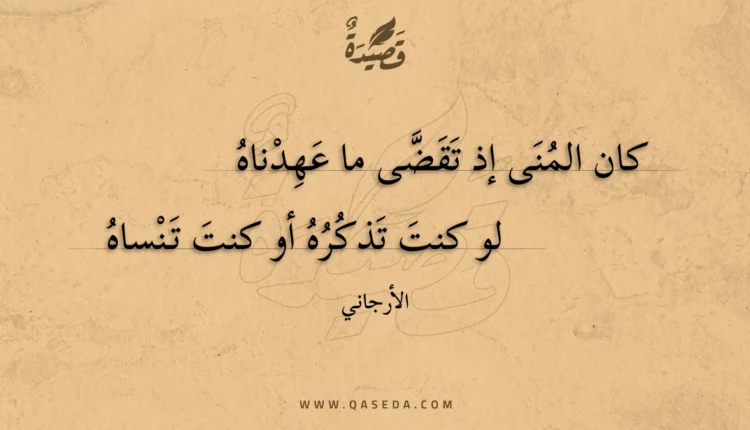 قَصِيدَةٌ
كان المُنَى إذ تَقَضَّى ما عَهِدْناهُ
لو كنتَ تَذكُرُهُ أو كنتَ تَنْساهُ
الأرجاني
WWW.QASEDA.COM